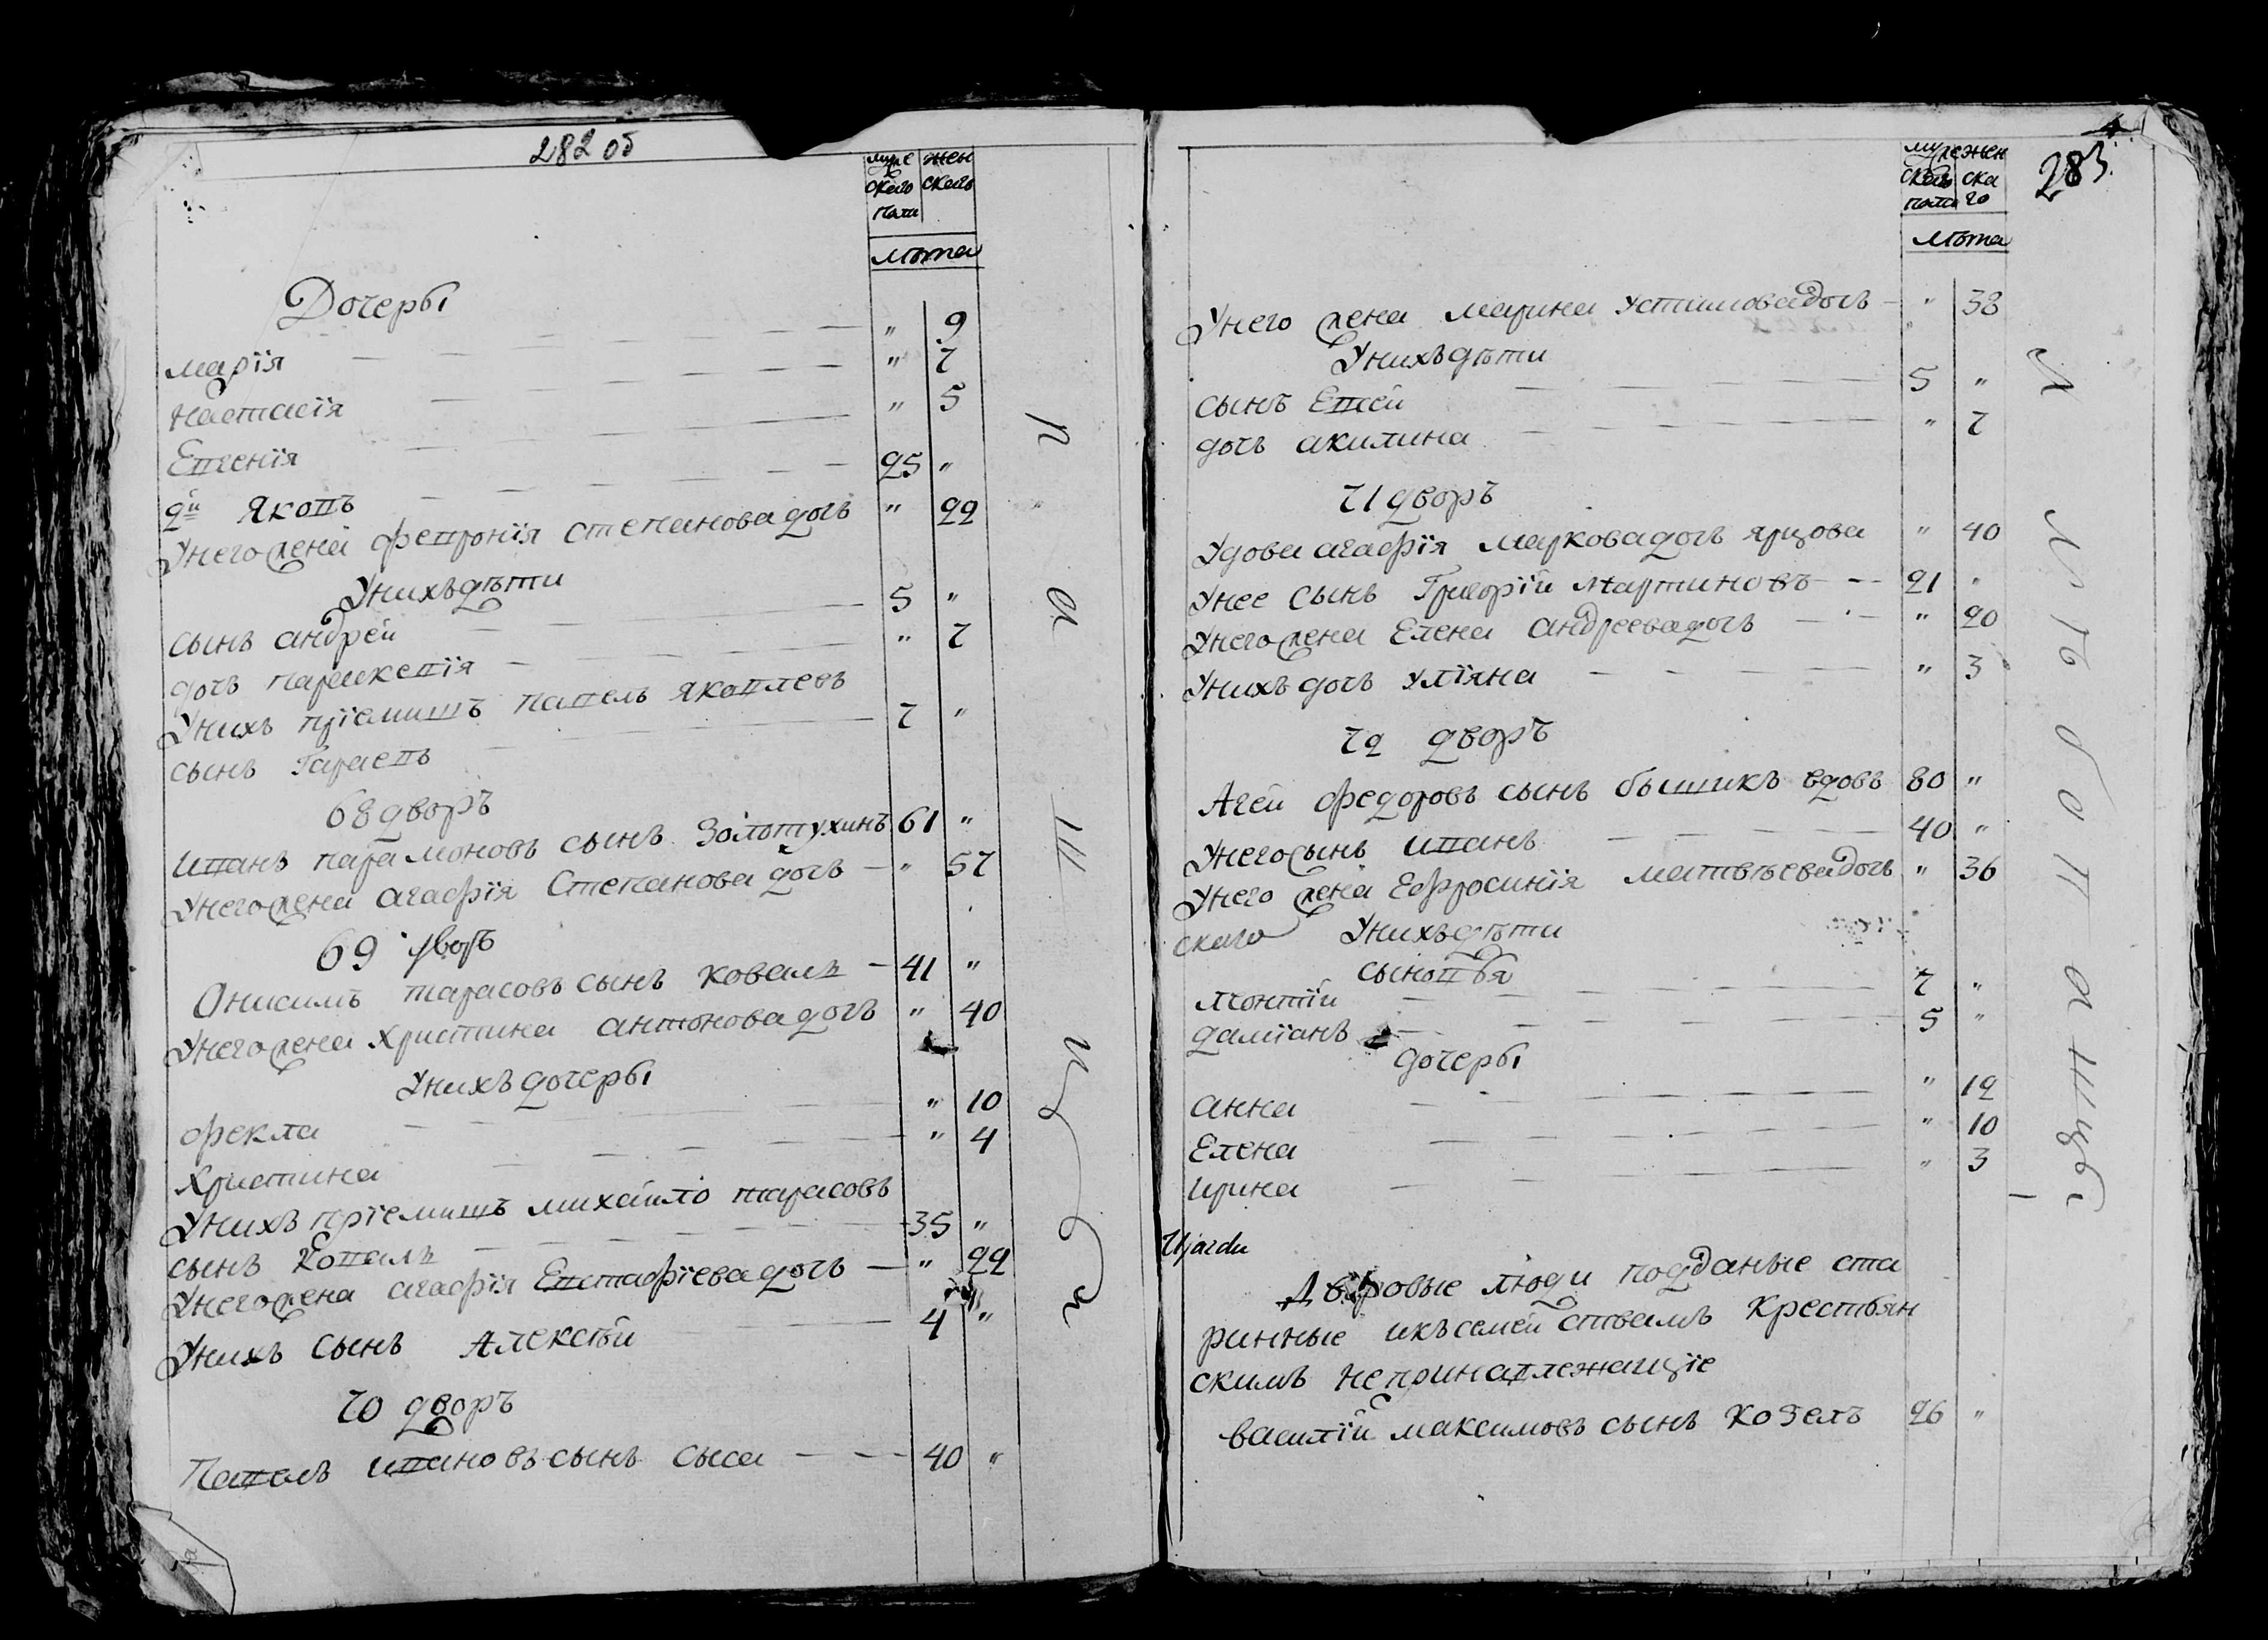 282 об
муже
скаго
пола
жен
скаго
лѣта
Дочеры
марїя — " 9
настасїя — " 7
Евгенїя — " 5
2й Яковъ — 25 "
Унего жена февронїя степанова дочъ " 22
Унихъ дѣти
сынъ андрей — 5 "
дочъ парискевїя — " 7
Унихъ прїемишъ павелъ яковлевъ
сынъ Тарасевъ — 7 "
68 дворъ
иванъ парамоновъ сынъ Золотухинъ 61 "
Унего жена агафїя Степанова дочъ — " 57
69 дворъ
Онисимъ тарасовъ сынъ коваль — 41 "
Унего жена христина антонова дочъ " 40
Унихъ дочеры
фекла — " 10
христина — " 4
Унихъ прїемишъ михайло тарасовъ
сынъ Коваль — 35 "
Унего жена агафїя Евстафїева дочъ — " 22
Унихъ сынъ Алексѣй — 4 "
70 дворъ
Павелъ ивановъ сынъ сыса — 40 "
283.
муже
скаго
пола
жен
ска
го
лѣта
Унего жена марина устимова дочъ — " 38
Унихъ дѣти
сынъ Евсей — 5 "
дочъ акилина — " 7
71 дворъ
Удова агафїя маркова дочъ ярцова " 40
Унее сынъ Григорїй мартиновъ — 21 "
Унего жена Елена андреева дочъ — " 20
Унихъ дочъ улїяна — " 3
72 дворъ
Агей федоровъ сынъ бышикъ вдовъ 80 "
Унего сынъ иванъ — 40 "
Унего жена Ефросинїя матвѣева дочъ " 36
скаго Унихъ дѣти
сыновья
леонтїй — 7 "
дамїанъ — 5 "
дочеры
анна — " 12
Елена — " 10
ирина — " 3
Дворовые люди подданые ста
ринные икъ семействамъ крестьян
скимъ непринадлежащїе
василїй максимовъ сынъ козелъ 26 "